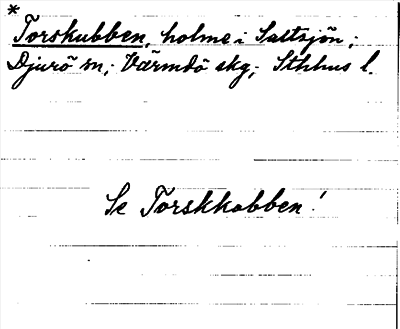 *
Torskubben, holme i Saltsjön;
Djurö sn; Värmdö skg; Sthlms l.
Se Torskkobben!